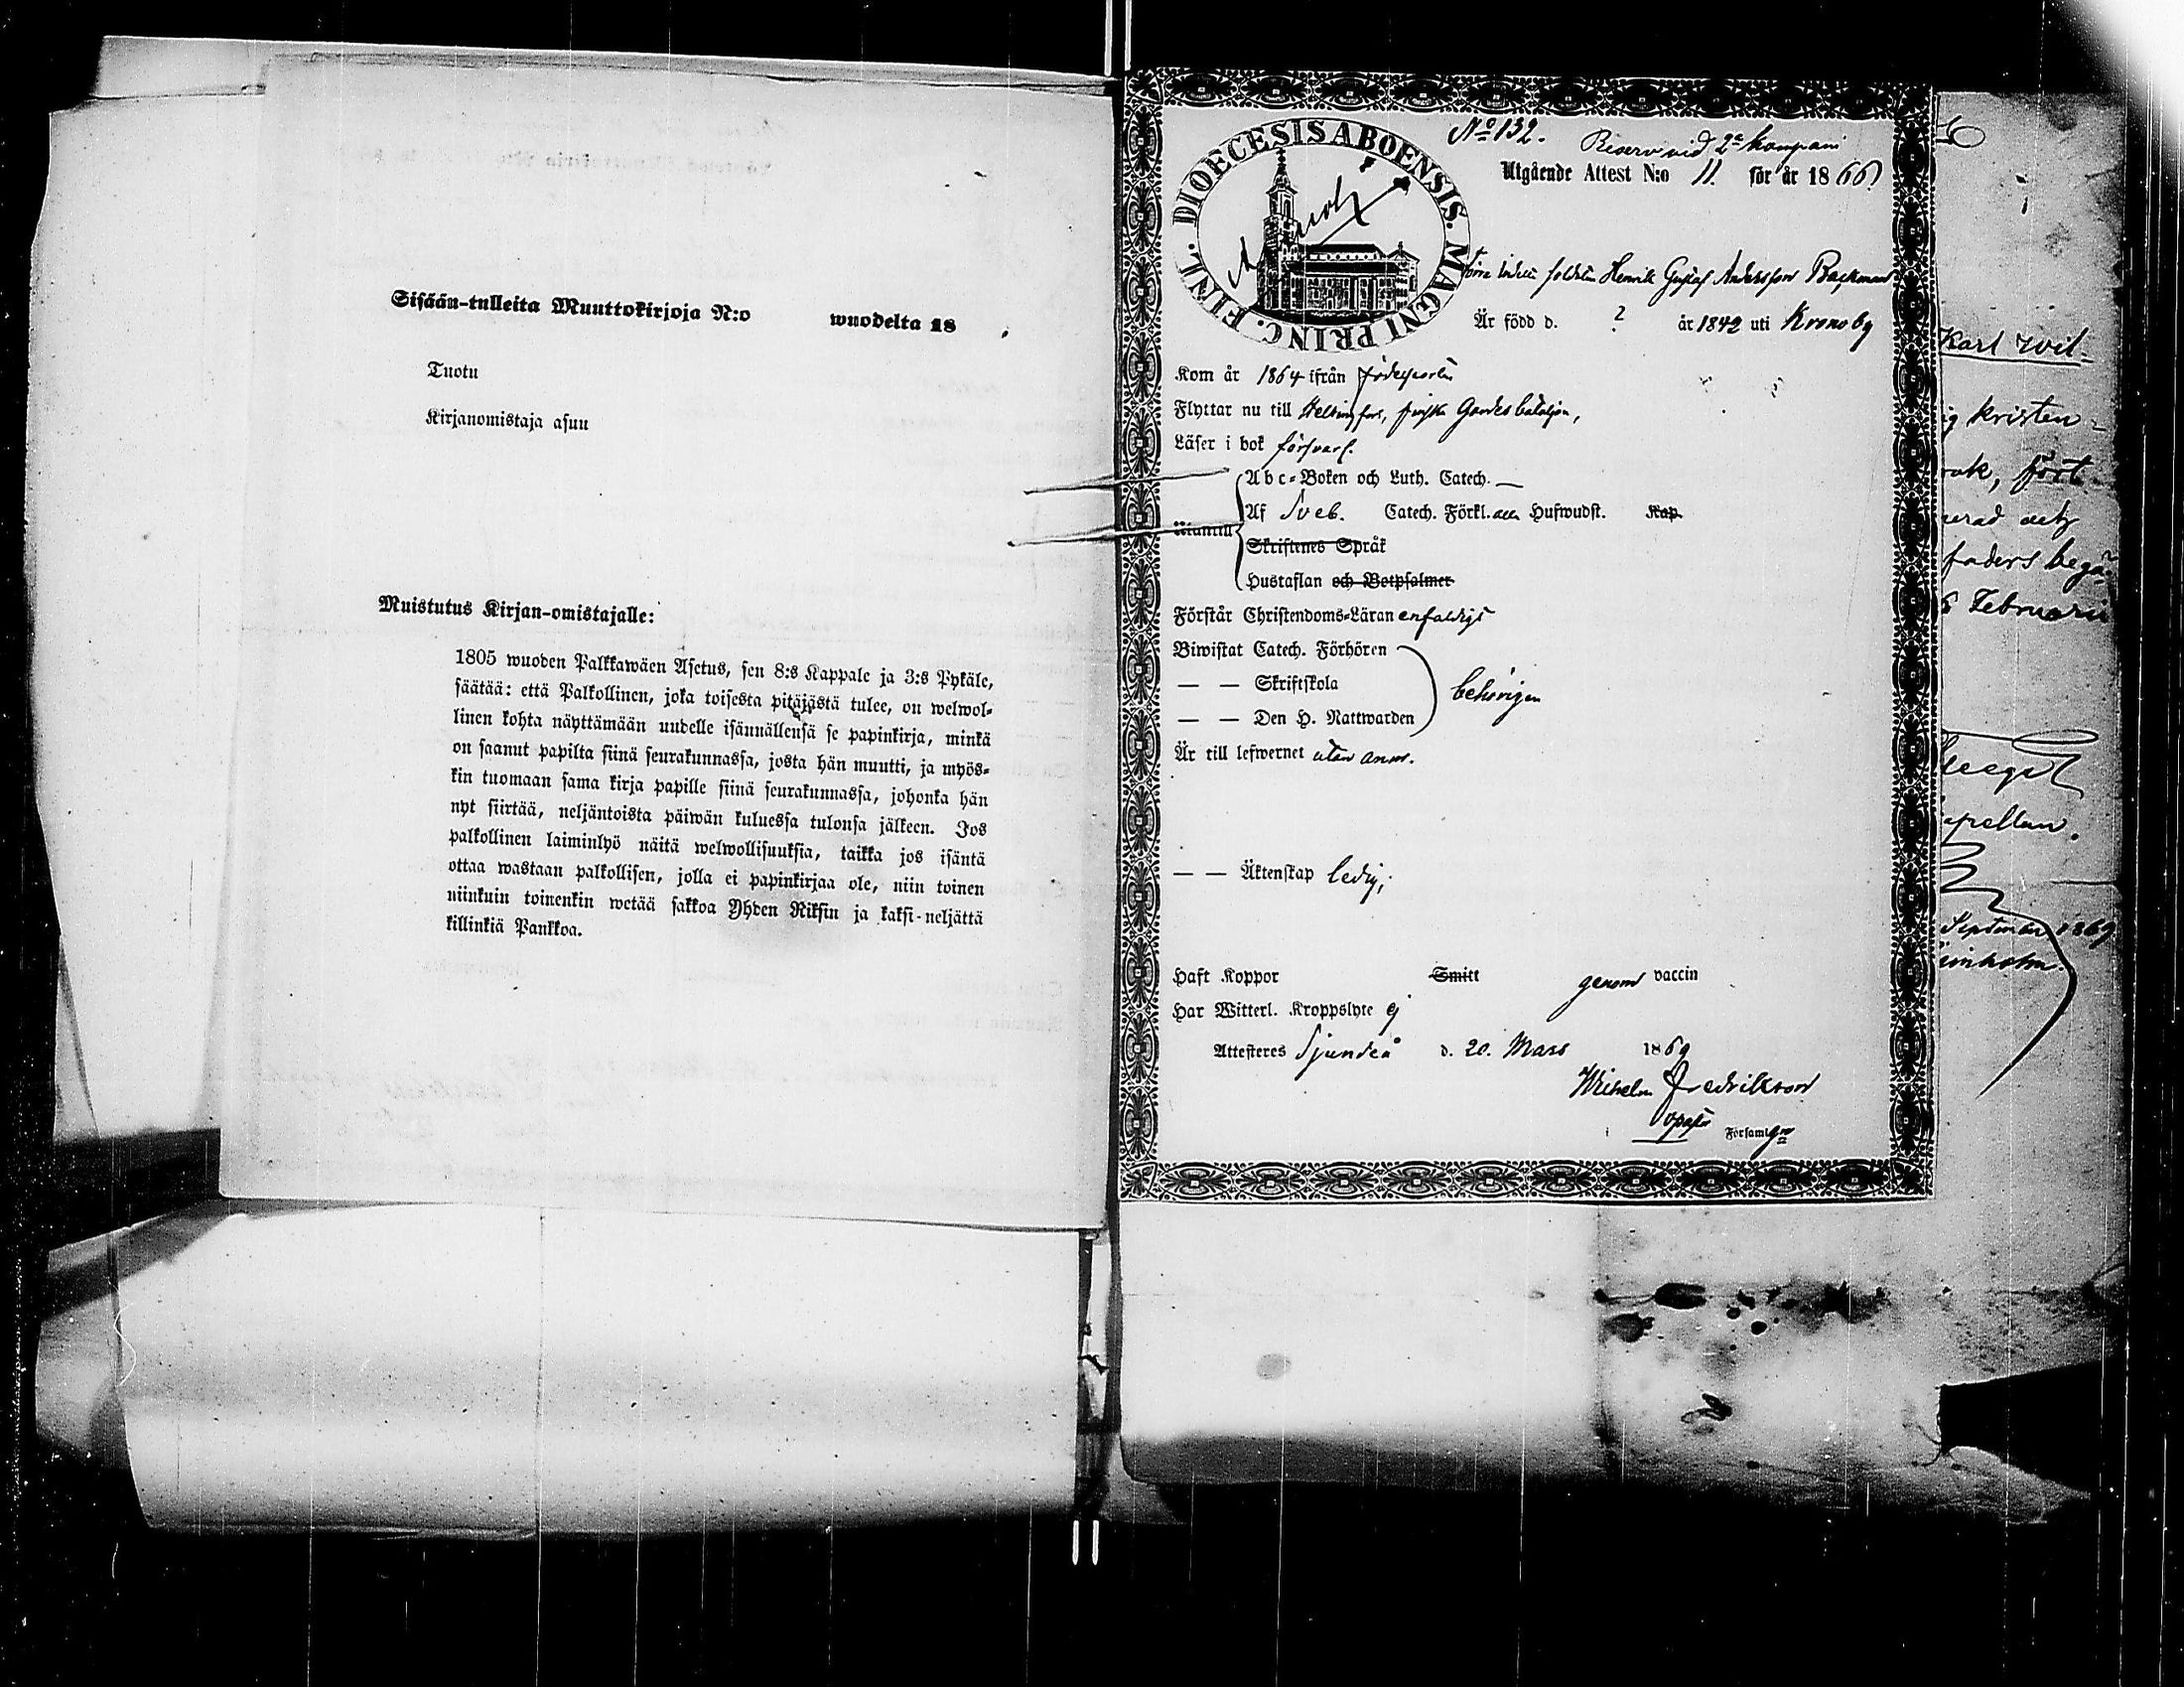 Sisään-tulleita Muuttokirjoja N:o wuodelta 18 .
Tuotu
Kirjanomistaja asuu
Muistutus Kirjan-omistajalle:
1805 wuoden Palkkawäen Asetus, sen 8:s Kappale ja 3:s Pykäle,
säätää: että Palkollinen, joka toisesta pitäjästä tulee, on welwol-
linen kohta näyttämään uudelle isännällensä se papinkirja, minkä
on saanut papilta siinä seurakunnassa, josta hän muutti, ja myös-
kin tuomaan sama kirja papille siinä seurakunnassa, johonka hän
nyt siirtää, neljäntoista päiwän kuluessa tulonsa jälkeen. Jos
palkollinen laiminlyö näitä welwollisuuksia, taikka jos isäntä
ottaa wastaan palkollisen, jolla ei papinkirjaa ole, niin toinen
niinkuin toinenkin wetää sakkoa Yhden Riksin ja kaksi-neljättä
killinkiä Pankkoa.
No 132.
Reserv vid 2a kompani
DIOECESIS ABOENSIS. MAGNI PRINC. FINL.
Utgående Attest N:o 11. för år 1866
soldaten Henrik Gustaf Andersson Backman
Är född d. ? år 1842 uti Kronoby
Kom år 1864 ifrån födelseorten
Flyttar nu till Helsingfors, finska Gardesbataljon,
Läser i bok försvarl.
Utantill
Abc-Boken och Luth. Catech. —
Af Sveb. Catech. Förkl. alla Hufwudst. Kap.
Skriftenes Språk
Hustaflan och Botpsalmer
Förstår Christendoms-Läran enfaldigt
Biwistat Catech. Förhören
— — Skriftskola behörigen
— — Den H. Nattwarden
Är till lefwernet utan anm.
— — Äktenskap ledig;
Haft Koppor Smitt genom vaccin
Har Witterl. Kroppslyte ej
Attesteres Sjundeå d. 20. Mars 1869
Wilhelm Fredrikson
Församlgn
Karl Wil-
kristen-
fort
faders begä-
Februari
Kapellan.
September 1869